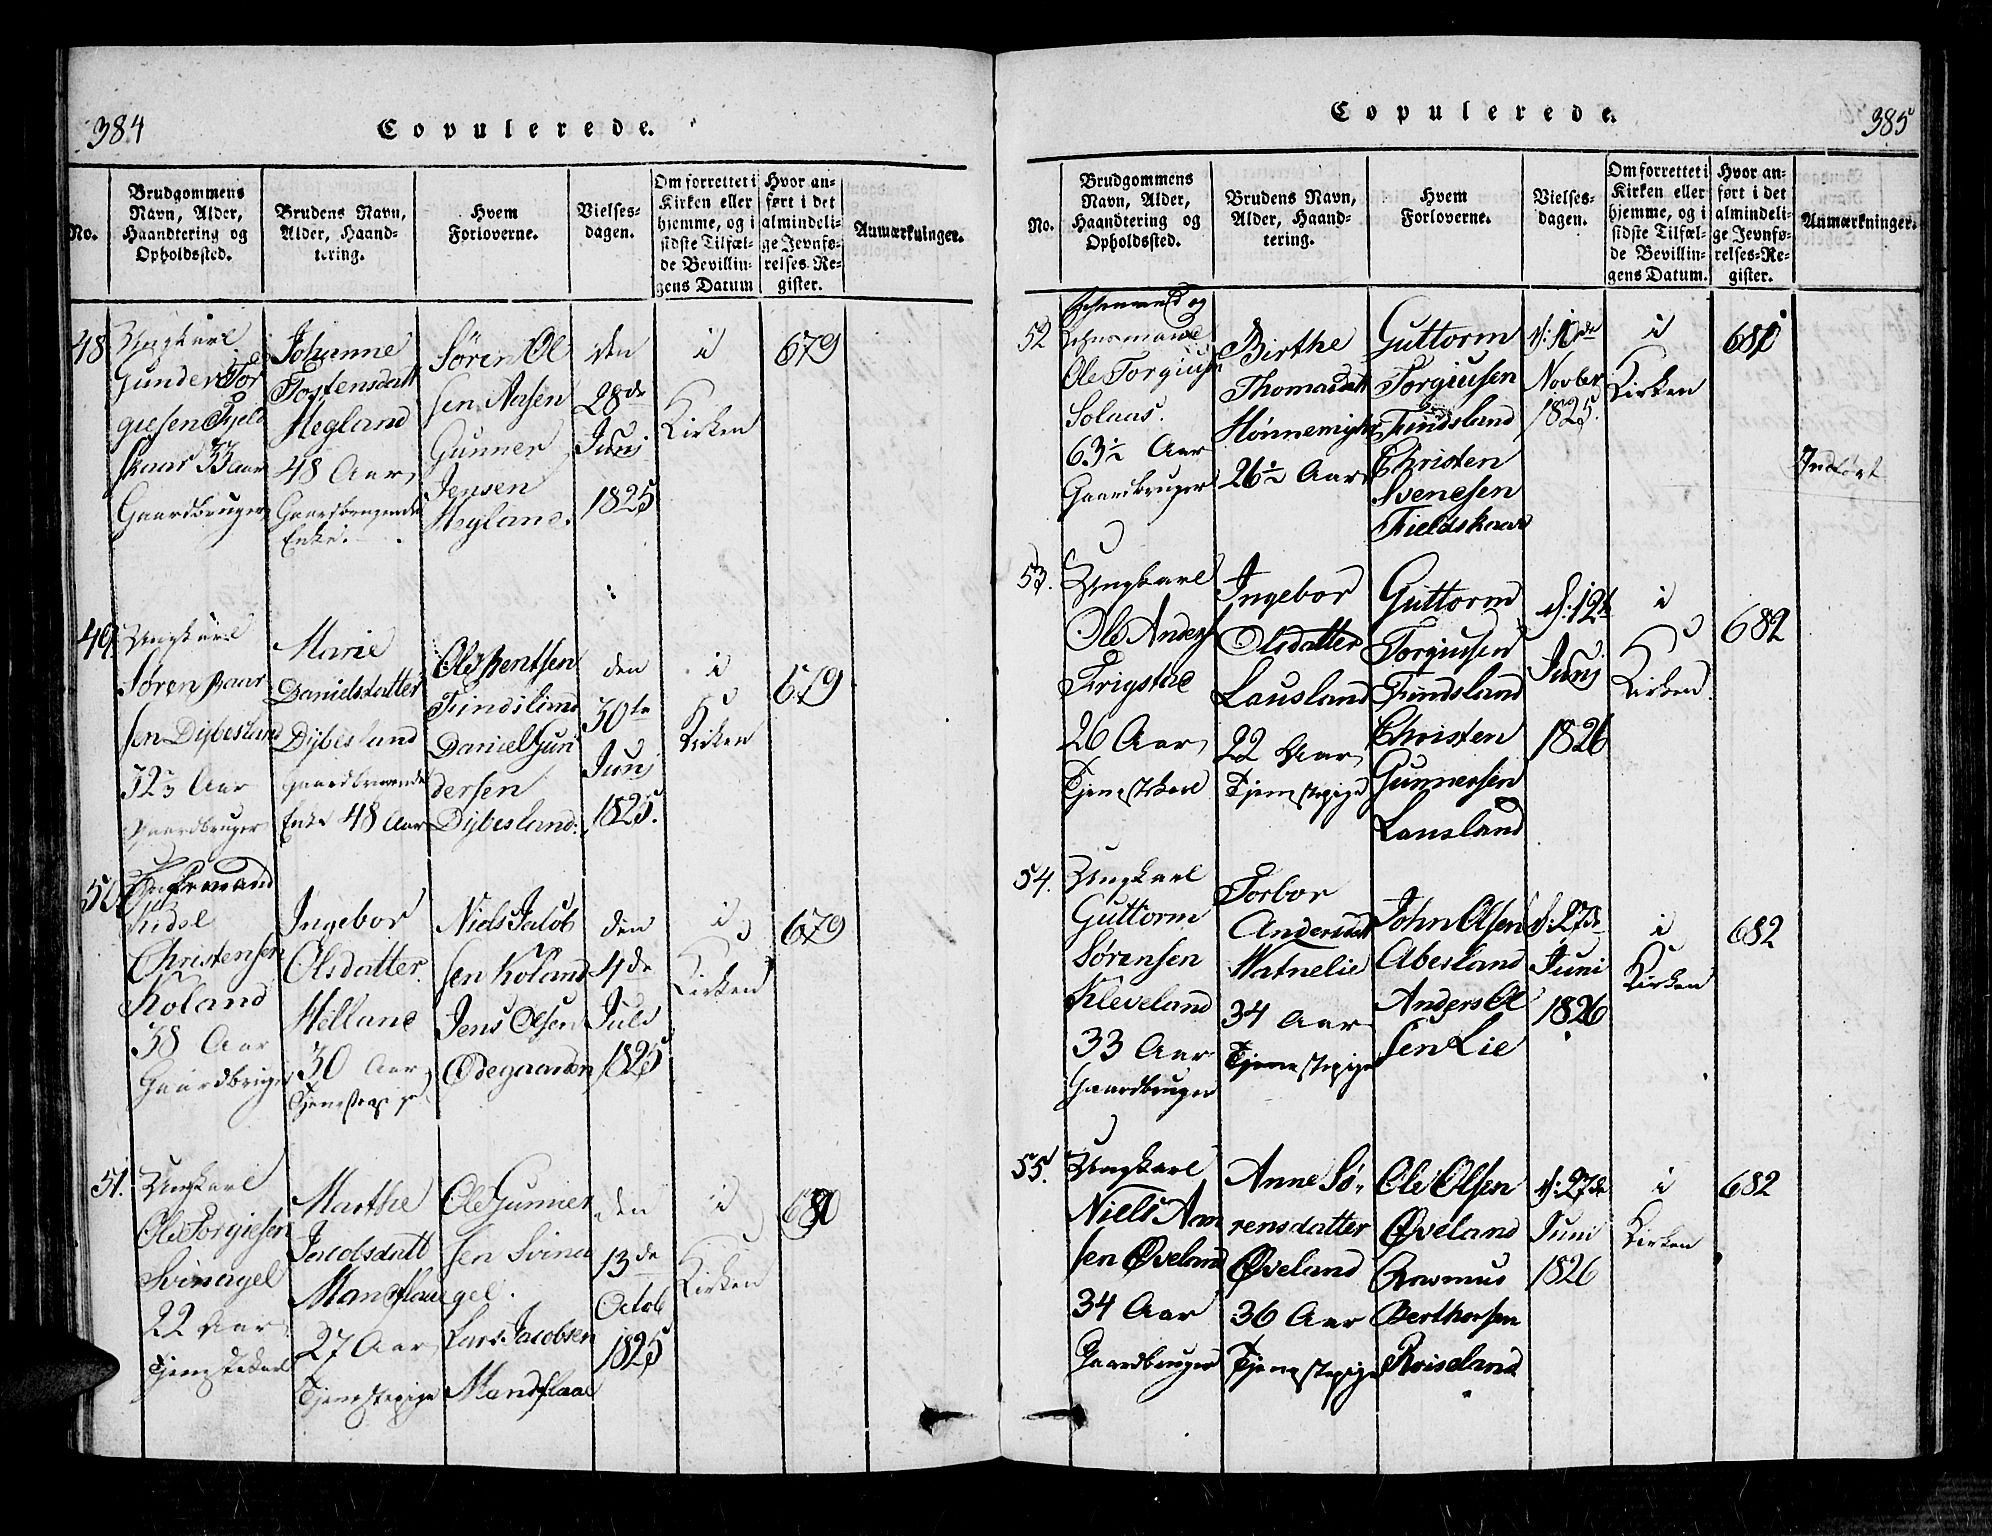 384
Copulerede.
No.
Brudgommens
Navn, Alder,
Haandtering og
Opholdssted.
Brudens Navn,
Alder, Haand-
tering.
Hvem
Forloverne.
Vielses-
dagen.
Om forrettet i
Kirken eller
hjemme, og i
sidste Tilfæl-
de Bevillin-
gens Datum
Hvor an-
ført i det
almindeli-
ge Jevnfø-
relses-Re-
gister.
Anmærkninger.
48
Ungkarl
Gunder Tor
giesen Fjeld
skaar 33 aar
Gaardbruger
Johanne
Tostensdatt
Hegland
48 Aar
Gaardbrugende
Enke.
Søren Ol
sen Aasen
Gunner
Jensen
Hegland.
den
28de
Junj
1825
i
Kirken
679
49
Ungkarl
Søren Baar
sen Dybesland
32 Aar
Gaardbruger
Marie
Danielsdatter
Dybesland
gaardbrugende
Enke 48 Aar
Ole Bentsen
Findsland
Daniel Gun
dersen
Dybesland.
den
30te
Junj
1825.
i
Kirken
679
50
Enkemand
Kidel
Christensen
Koland
38 Aar
Gaardbruger
Ingebor
Olsdatter
Helland
30 Aar
Tjenestepige
Niels Jacob
sen Koland
Jens Olsen
Ødegaarden
den
4de
Juli
1825
i
Kirken
679
51.
Ungkarl
Ole Torgiesen
Svinagel
22 Aar
Tjenestekarl
Marthe
Jacobsdatt
Mandflaae
27 Aar
Tjenestepige
Ole Gunner
sen Svina
gel.
Lars Jacobsen
Mandflaae
den
13de
Octob
1825
i
Kirken
680
385
Copulerede.
No.
Brudgommens
Navn, Alder,
Haandtering og
Opholdssted.
Brudens Navn,
Alder, Haand-
tering.
Hvem
Forloverne.
Vielses-
dagen.
Om forrettet i
Kirken eller
hjemme, og i
sidste Tilfæl-
de Bevillin-
gens Datum.
Hvor an-
ført i det
almindeli-
ge Jevnfø-
relses-Re-
gister.
Anmærkninger.
52
Ole Torgiusen
Solaas.
63½ Aar
Gaardbruger
Birthe
Thomasdatt
Hønnemyhr
26½ Aar
Guttorm
Torgiusen
Findsland
Christen
Svenesen
Fieldskaar
Novber
1825.
i
Kirken
681
Indført
53.
Ungkarl
Ole Anders
Frigstad
26 Aar
Tjenestekarl
Ingebor
Olsdatter
Lausland
22 Aar
Tjenestepige
Guttorm
Torgiusen
Findsland
Christen
Gunnersen
Lausland
d: 12t
Junj
1826
i
Kirken.
682
54.
Ungkarl
Guttorm
Sørensen
Kleveland
33 Aar
Gaardbruger
Torbor
Andersdatt
Watnelie
34 Aar
Tjenestepige
John Olsen
Abesland
Anders Ol
sen Lie
d: 27de
Juni
1826
i
Kirken
682
55.
Ungkarl
Niels Aan
sen Øveland
34 Aar
Gaardbruger
Anne Sø-
rensdatter
Øveland
36 Aar
Tjenestepige
Ole Olsen
Øveland
Rasmus
Berthorsen
Roiseland
d: 27de
Juni
1826
i
Kirken
682